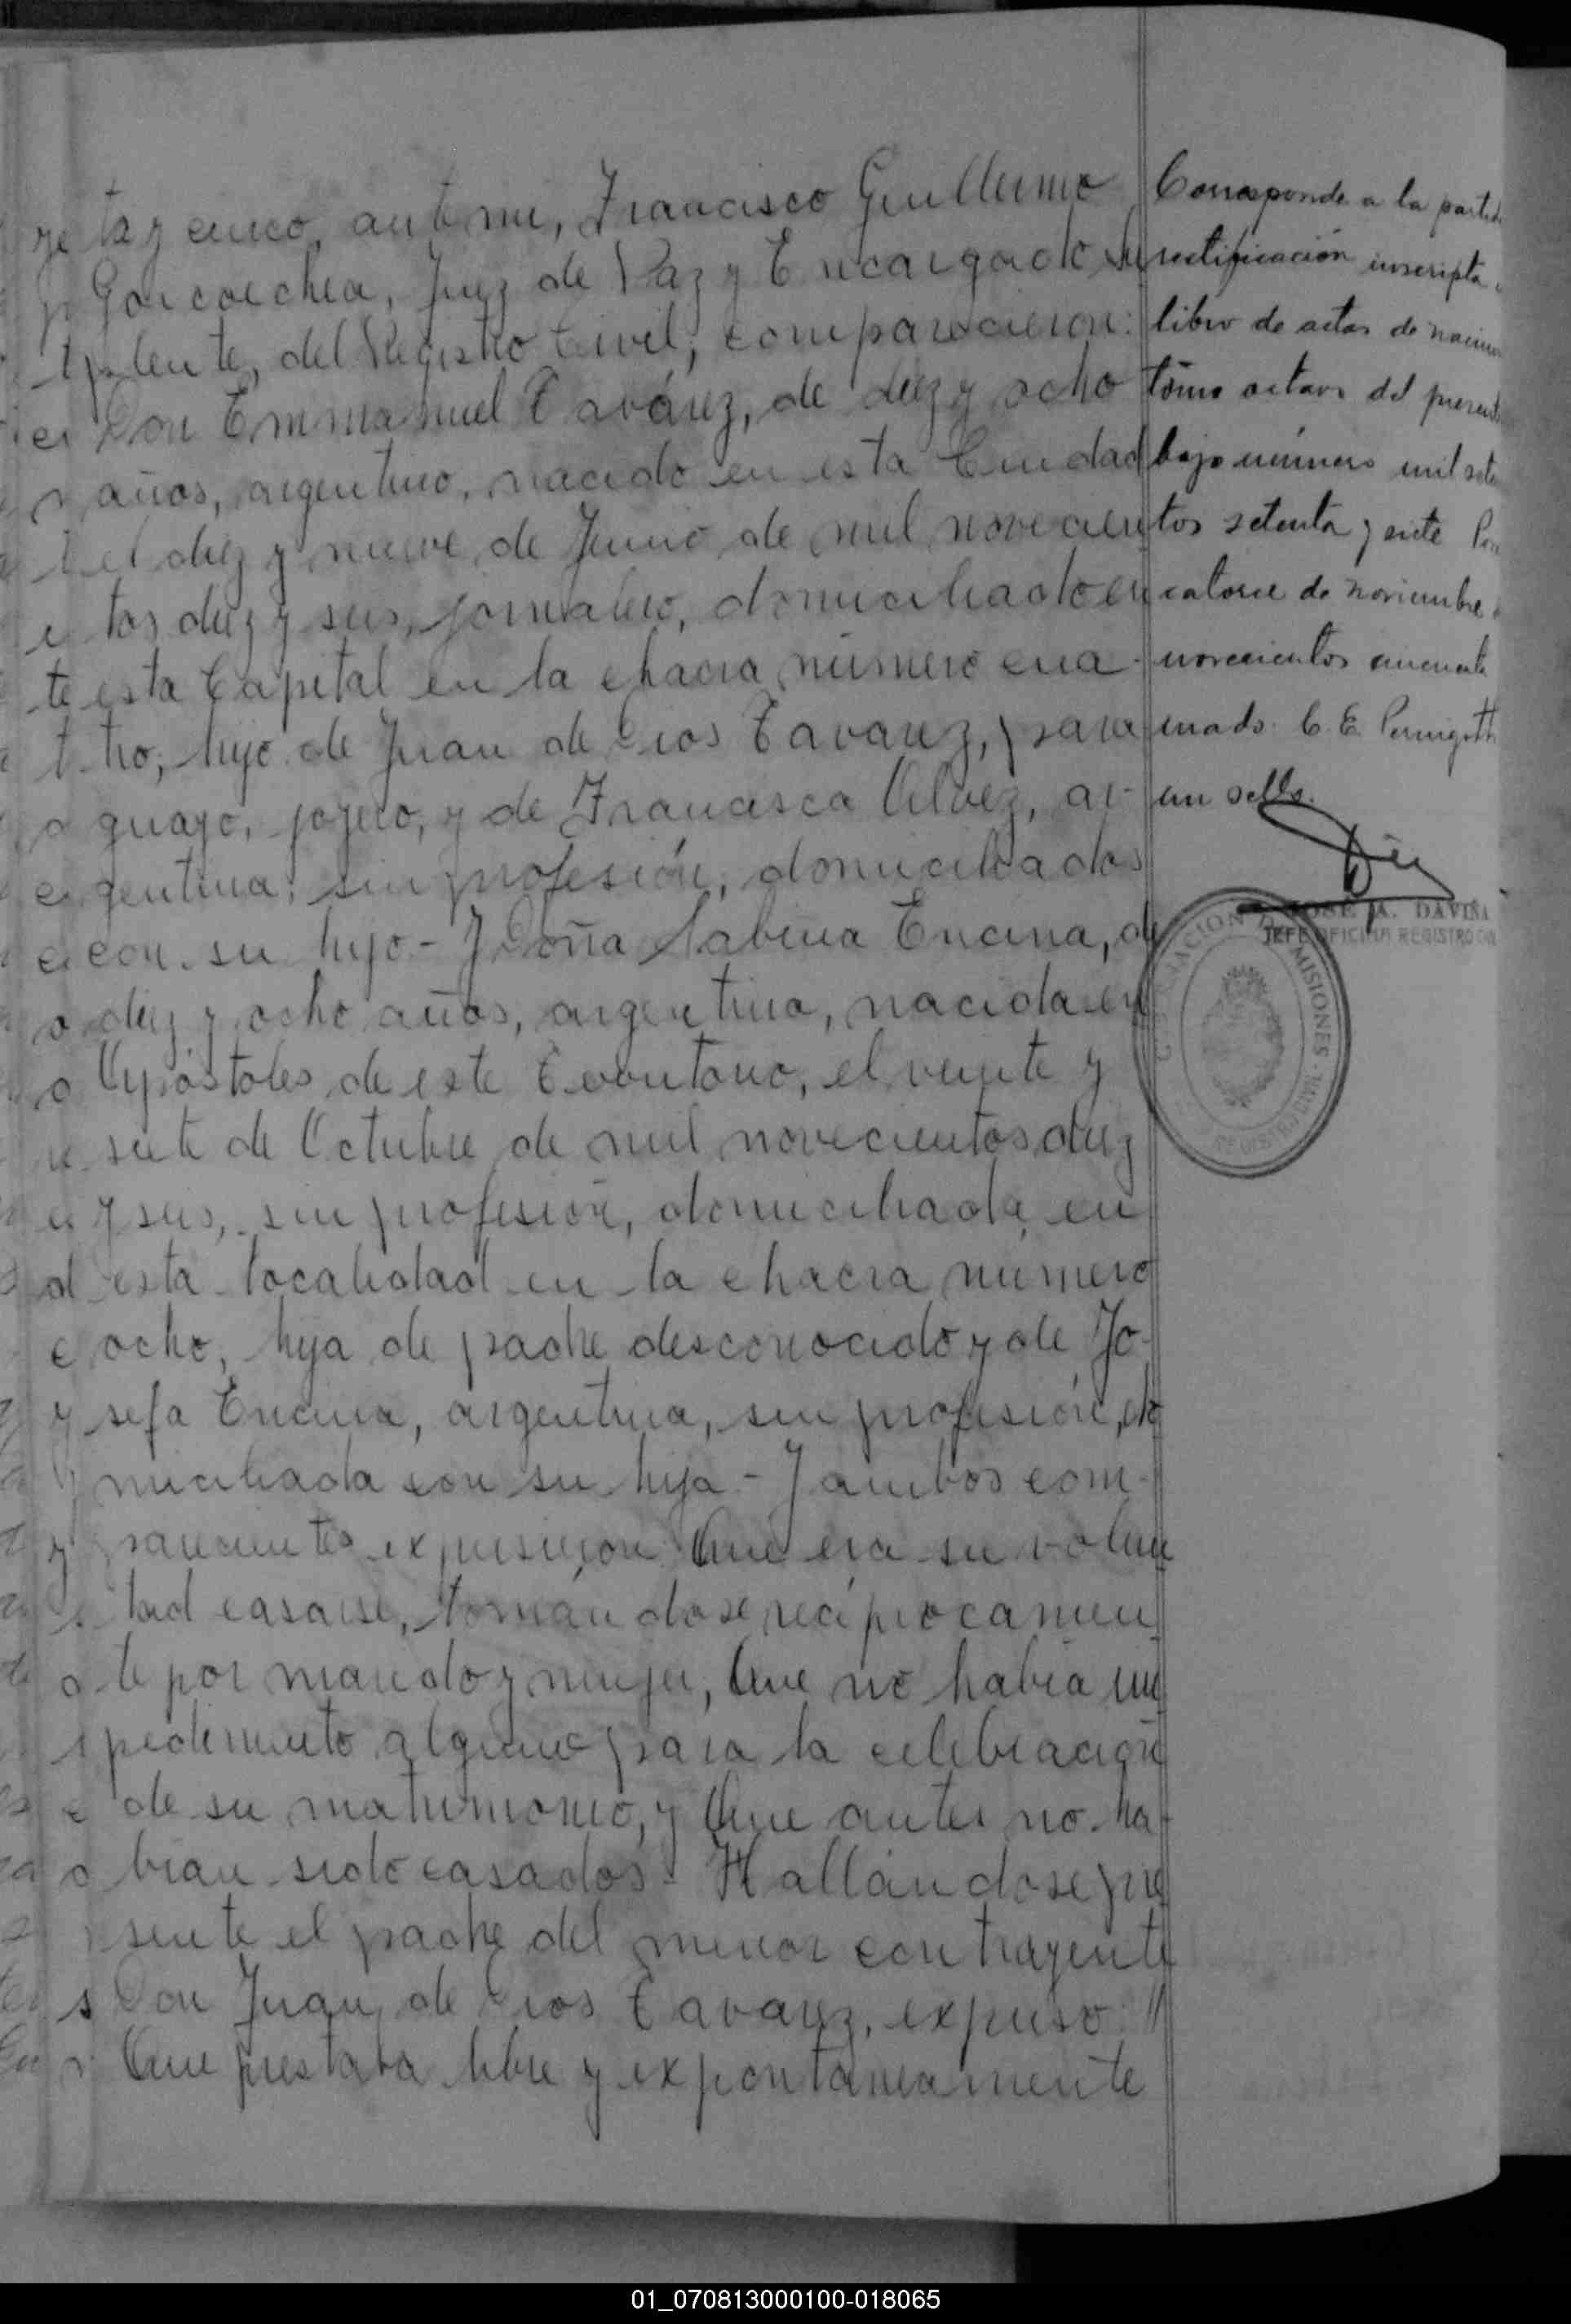 ta y cinco, ante mi, Francisco Guillermo
Goicoechea, Juez de Paz y Encargado Su
plente, del Registro Civil, comparecieron:
Don Emmanuel Tavárez, de diez y ocho
años, argentino, nacido en esta Ciudad
el diez y nueve de Junio de mil novecien
tos diez y seis, jornalero, domiciliado en
esta Capital en la chacra número cua-
tro, hijo de Juan de Dios Tavarez, para
guayo, joyero, y de Francisca Alvez, ar-
gentina, sin profesión, domiciliados
con su hijo - Y Doña Sabina Encina, de
diez y ocho años, argentina, nacida en
Apóstoles de este Territorio, el veinte y
siete de Octubre de mil novecientos diez
y seis, sin profesión, domiciliada en
esta localidad en la chacra número
ocho, hija de padre desconocido y de Jo-
sefa Encina, argentina, sin profesión, do
miciliada con su hija - Y ambos com-
parecientes expusieron: Que era su volun
tad casarse, tomándose recíprocamen
te por marido y mujer, Que no había im
pedimento alguno para la celebración
de su matrimonio, y Que antes no ha-
bían sido casados. Hallándose pre
sente el padre del menor contrayente
Don Juan de Dios Tavarez, expuso: "
Que prestaba libre y expontáneamente
Corresponde a la partida
rectificación inscripta
libro de actas de nacim
tomo octavo del presente
bajo número mil sete
tos setenta y siete
catorce de noviembre
novecientos cincuenta
mado. C. E. Pernigotti
un sello.
JOSÉ A. DAVIÑA
JEFE OFICINA REGISTRO CIVIL
GOBERNACION DE MISIONES - REGISTRO CIVIL
01_070813000100-018065